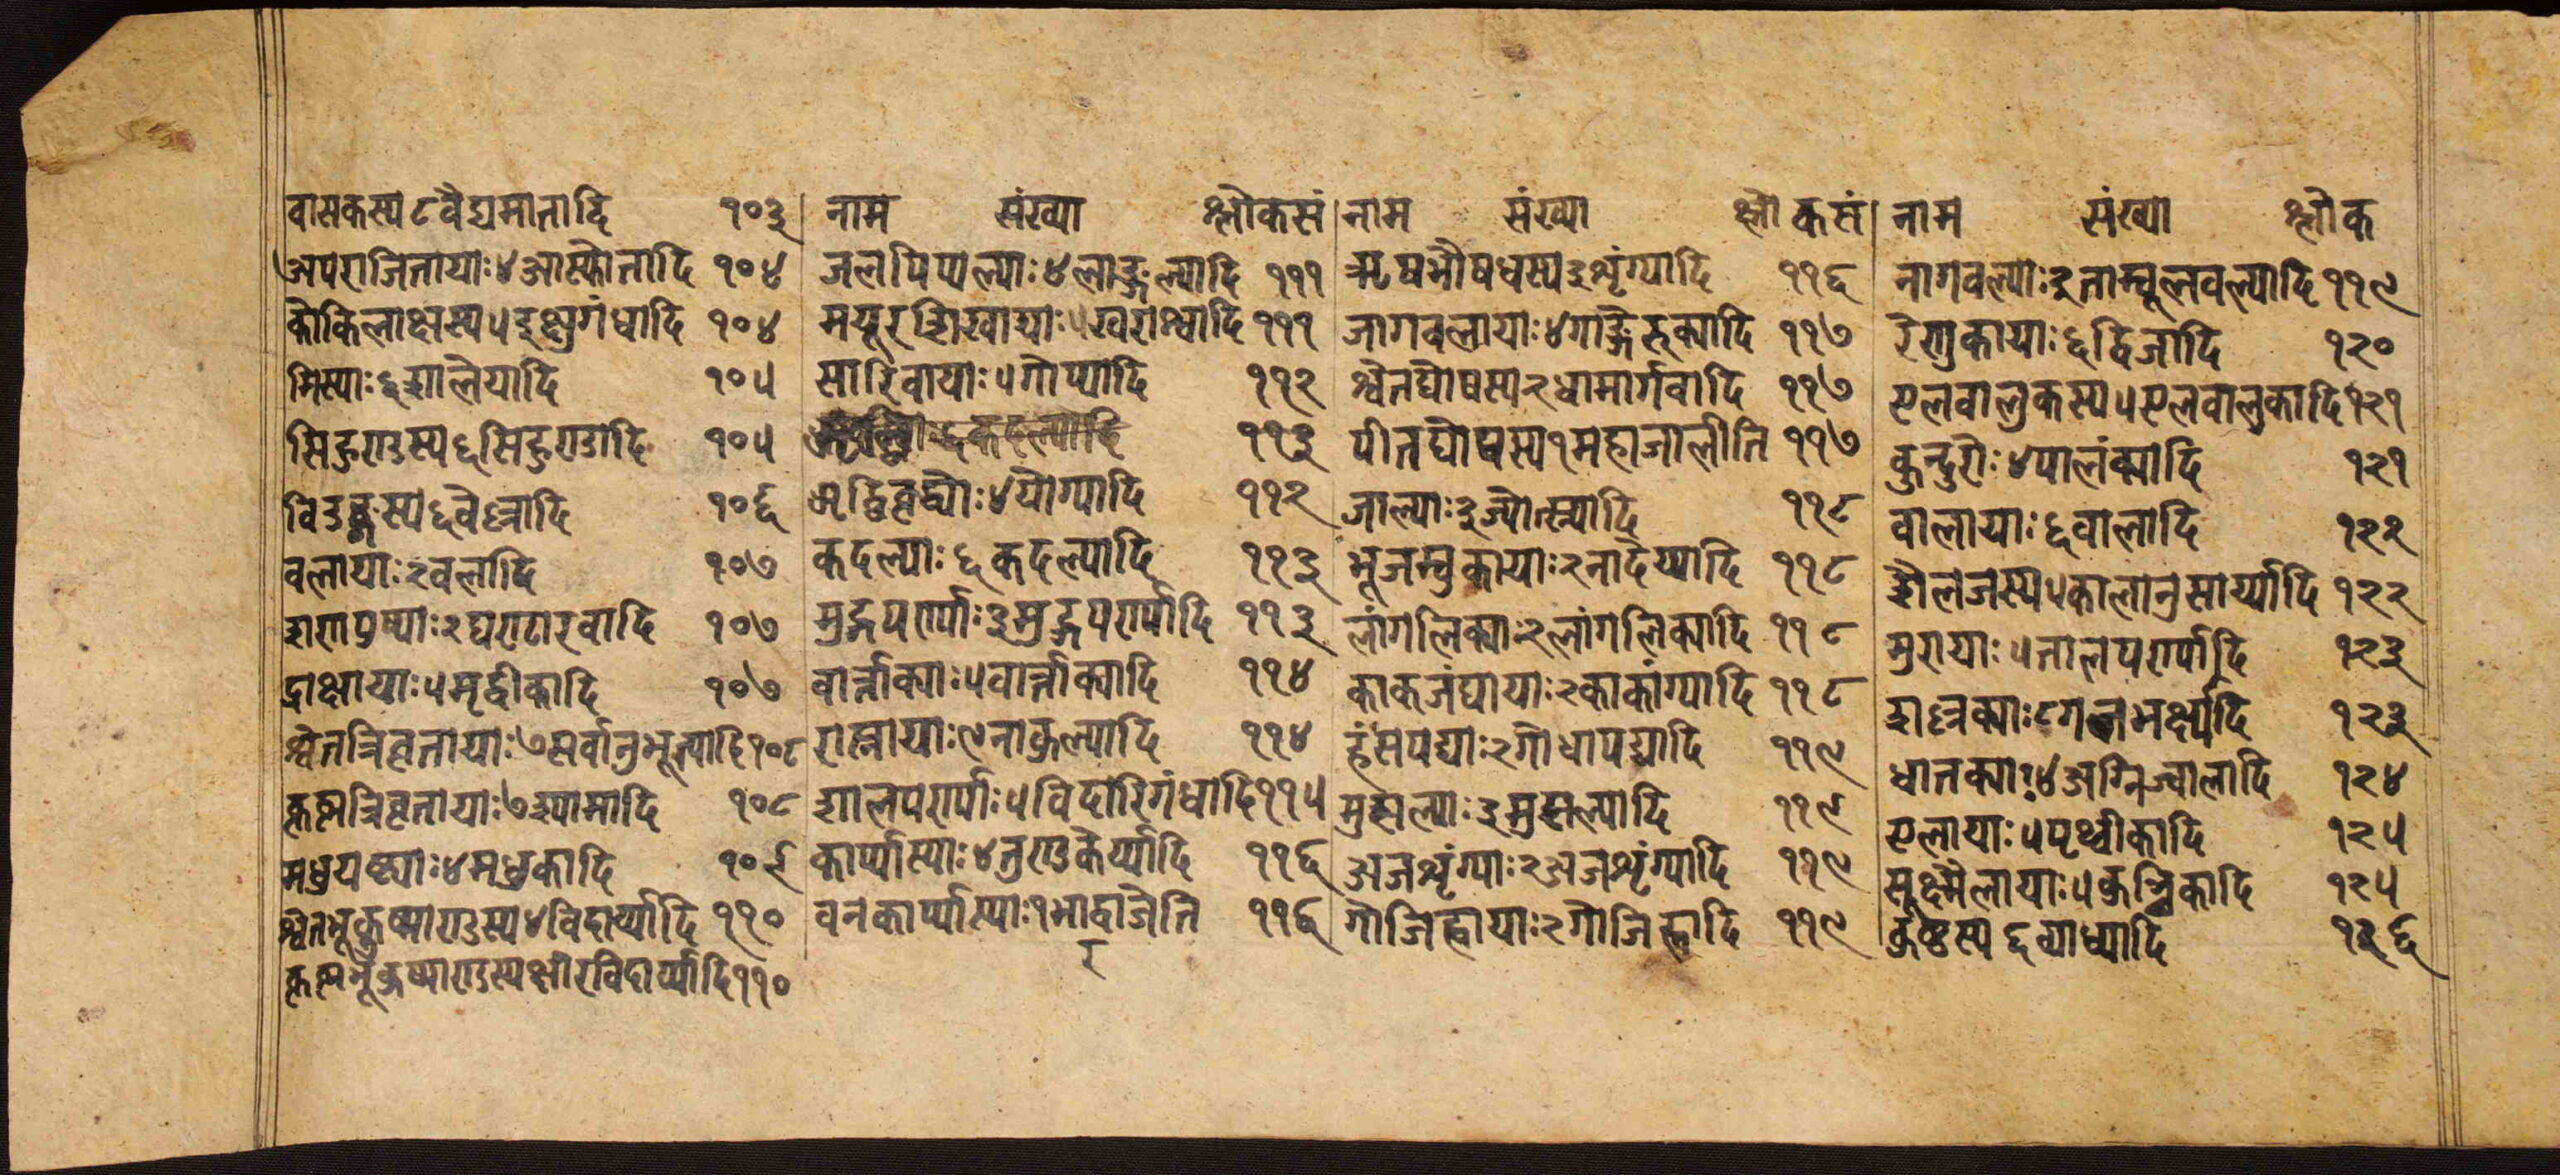 वासकस्य ८ वैद्यमातादि १०३
अपराजितायाः ४ आस्फोतादि १०४
कोकिलाक्षस्य ५ इक्षुगंधादि १०४
मिस्याः ६ शालेयादि १०५
सिहुण्डस्य ६ सिहुण्डादि १०५
विडङ्गस्य ६ वेल्लादि १०६
बलायाः २ बलादि १०७
शणपुष्याः २ घण्टारवादि १०७
द्राक्षायाः ५ मृद्वीकादि १०७
श्वेतत्रिवृतायाः ७ सर्वानुभूत्यादि १०८
कृष्णत्रिवृतायाः ७ श्यामादि १०८
मधुयष्ट्याः ४ मधुकादि १०९
श्वेतभूकुष्माण्डस्य ४ विदार्य्यादि ११०
कृष्णभूकुष्माण्डस्य क्षीरविदार्य्यादि ११०
नाम संख्या श्लोकसं
जलपिप्पल्याः ४ लाङ्गल्यादि १११
मयूरशिखायाः ५ खराश्वादि १११
सारिवायाः ५ गोप्यादि ११२
कदल्यादि ११३
ऋद्धिवृद्ध्योः ४ योग्यादि ११२
कदल्याः ६ कदल्यादि ११३
मुद्गपर्ण्याः ३ मुद्गपर्ण्यादि ११३
वार्त्ताक्याः ५ वार्त्ताक्यादि ११४
रास्नायाः ९ नाकुल्यादि ११४
शालपर्ण्याः ५ विदारिगंधादि ११५
कार्प्पास्याः ४ तुण्डकेर्य्यादि ११६
वनकार्प्पास्याः १ भाद्वाजेति ११६
नाम संख्या श्लोकसं
ऋषभौषधस्य ३ शृंग्यादि ११६
नागवलायाः ४ गाङ्गेरुक्यादि ११७
श्वेतघोषस्य २ धामार्गवादि ११७
पीतघोषस्य १ महाजालीति ११७
जाल्याः ३ ज्योत्स्न्यादि ११८
भूजम्बुकायाः २ नादेय्यादि ११८
लांगलिक्याः २ लांगलिक्यादि ११८
काकजंघायाः २ काकांग्यादि ११८
हंसपद्याः २ गोधापद्यादि ११९
मुसल्याः ३ मुसल्यादि ११९
अजशृंग्याः २ अजशृंग्यादि ११९
गोजिह्वायाः २ गोजिह्वादि ११९
नाम संख्या श्लोक
नागवल्याः ३ ताम्बूलवल्यादि ११९
रेणुकायाः ६ द्विजादि १२०
एलवालुकस्य ५ एलवालुकादि १२१
कुन्दुरोः ४ पालंक्यादि १२१
वालायाः ६ वालादि १२२
शैलजस्य ५ कालानुसार्य्यादि १२२
मुरायाः ५ तालपर्ण्यादि १२३
शल्लक्याः ८ गजभक्ष्यादि १२३
धातक्याः ४ अग्निज्वालादि १२४
एलायाः ५ पृथ्वीकादि १२५
सूक्ष्मैलायाः ५ कुञ्चिकादि १२५
कुष्टस्य ६ व्याध्यादि १२६